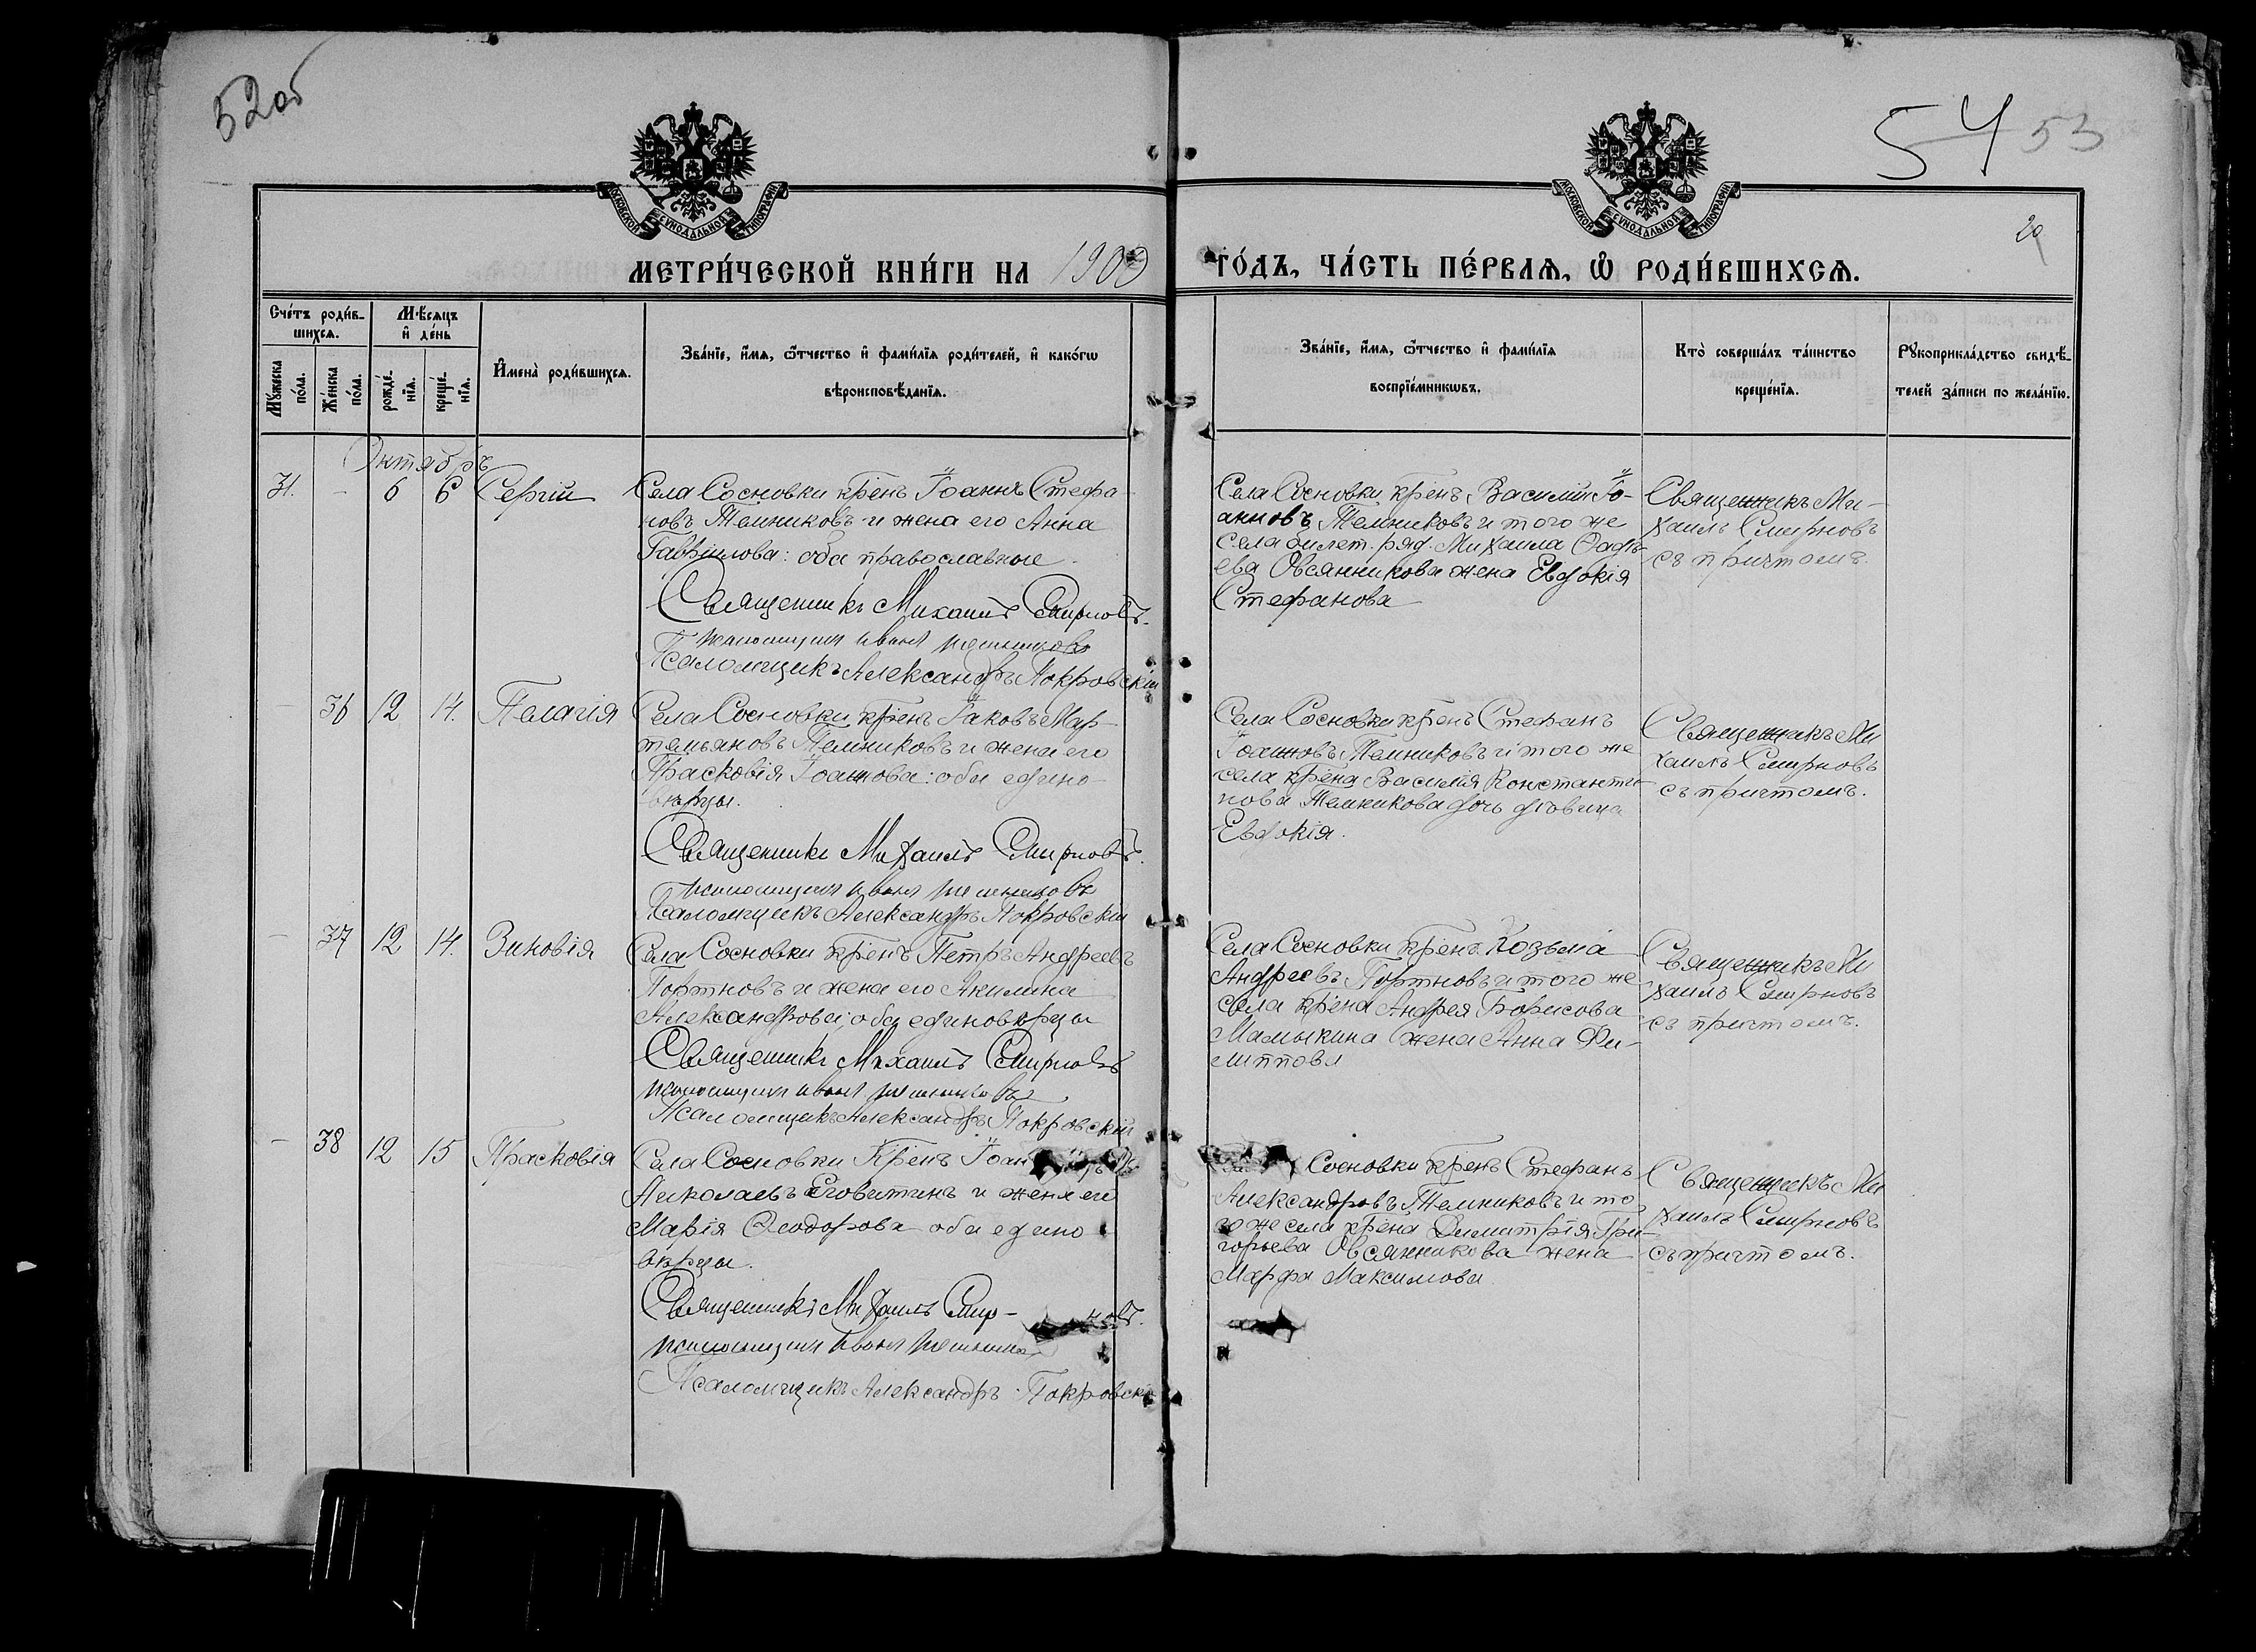 52об
54 53
20
МОСКОВСКОЙ СѴНОДАЛЬНОЙ ТИПОГРАФІИ
МОСКОВСКОЙ СѴНОДАЛЬНОЙ ТИПОГРАФІИ
МЕТРИ́ЧЕСКОЙ КНИ́ГИ НА 1909 ГО́ДЪ, ЧА́СТЬ ПЕ́РВАЯ, Ѡ РОДИ́ВШИХСЯ.
Сче́тъ роди́в-
шихся.
Мѣ́сяцъ
и҆ де́нь
Мꙋ́жеска по́ла.
Же́нска по́ла.
рожде́-
нїя.
креще́-
нїя.
И҆мена̀ роди́вшихся.
Зва́нїе, и҆́мя, ѻ҆́тчество и҆ фами́лїя роди́телей, и҆ како́гѡ
вѣроисповѣ́данїя.
Зва́нїе, и҆́мя, ѻ҆́тчество и҆ фами́лїя
воспрїе́мникѡвъ.
Кто̀ соверша́лъ та́инство
креще́нїя.
Рꙋкоприкла́дство свидѣ́-
телей за́писи по жела́нїю.
Октябрь
31. - 6 6 Сергій
Села Сосновки крѣнъ Іоаннъ Стефа-
новъ Темниковъ и жена его Анна
Гаврілова: оба православные
Священникъ Михаилъ Смирновъ.
Иванъ
Псаломщикъ Александръ Покровскій
Села Сосновки крѣнъ Василій Іо-
анновъ Темниковъ и того же
села билет. ряд. Михаила Фадѣ-
ева Овсянникова жена Евдокія
Стефанова
Священникъ Ми-
хаилъ Смирновъ
съ причтомъ.
- 36 12 14. Пелагія
Села Сосновки крѣнъ Іаковъ Мар-
темьяновъ Темниковъ и жена его
Прасковія Іоаннова: оба едино-
вѣрцы.
Священникъ Михаилъ Смирновъ.
Иванъ
Псаломщикъ Александръ Покровскій
Села Сосновки крѣнъ Стефанъ
Іоанновъ Темниковъ и того же
села крѣна Василія Константи-
нова Темникова дочь дѣвица
Евдокія.
Священникъ Ми
хаилъ Смирновъ
съ причтомъ.
- 37 12 14. Зиновія
Села Сосновки крѣнъ Петръ Андреевъ
Портновъ и жена его Акилина
Александрова: оба единовѣрцы
Священникъ Михаилъ Смирновъ
Иванъ
Псаломщикъ Александръ Покровскій
Села Сосновки крѣнъ Козьма
Андреевъ Портновъ и того же
села крѣна Андрея Борисова
Мамыкина жена Анна Фи-
липпова
Священникъ Ми
хаилъ Смирновъ
съ причтомъ.
- 38 12 15 Прасковія
Села Сосновки крѣнъ Іоан
Николаевъ Еговитинъ и жена его
Марія Ѳеодорова оба едино
вѣрцы.
Священникъ Михаилъ Смир-
новъ.
Иванъ
Псаломщикъ Александръ Покровскій
Сосновки крѣнъ Стефанъ
Александровъ Темниковъ и то
го же села крѣна Димитрія Гри-
горьева Овсянникова жена
Марфа Максимова
Священникъ Ми
хаилъ Смирновъ
съ причтомъ.